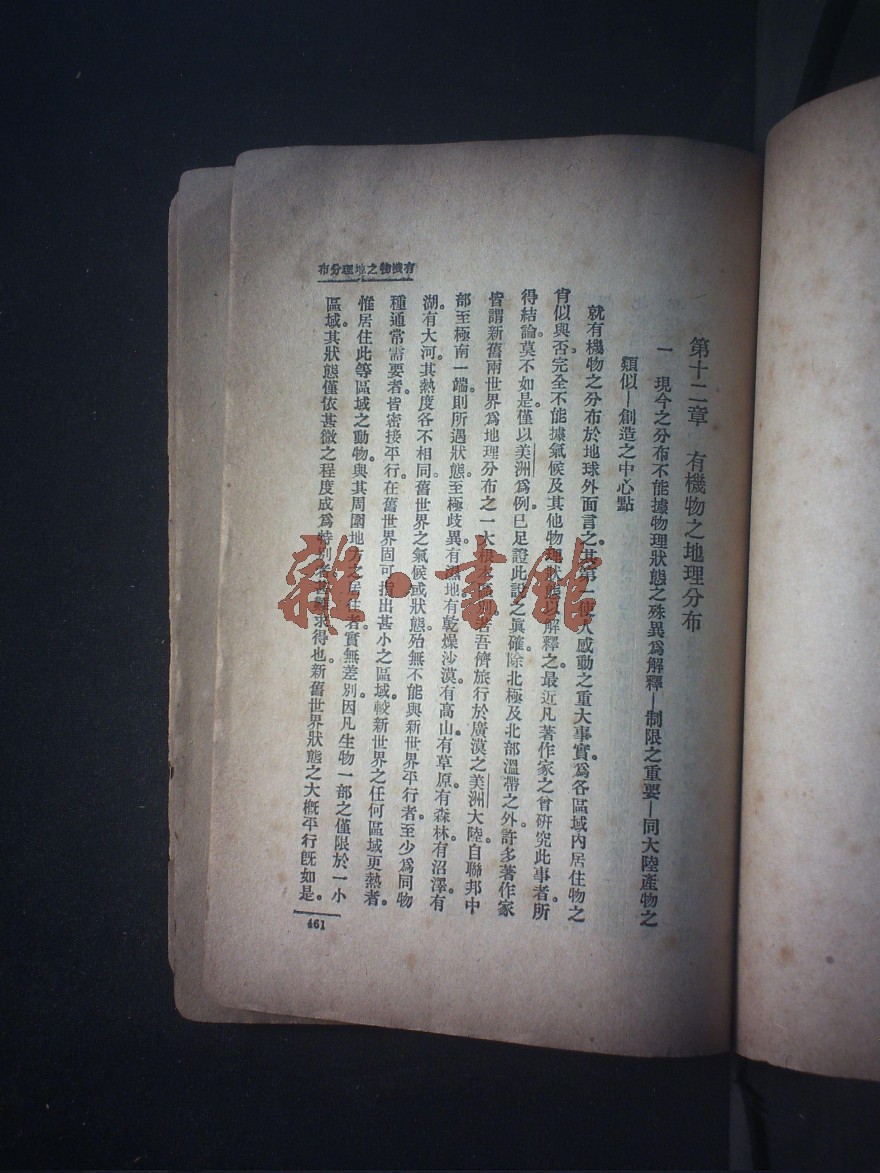 第十二章　有機物之地理分布
一　現今之分布不能據物理狀態之殊異爲解釋—制限之重要—同大陸產物之
類似—創造之中心點
就有機物之分布於地球外面言之。其第一使人感動之重大事實。爲各區域內居住物之
肖似與否。完全不能據氣候及其他物理狀態以解釋之。最近凡著作家之曾硏究此事者。所
得結論。莫不如是。僅以美洲爲例。已足證此說之眞確。除北極及北部溫帶之外。許多著作家
皆謂新舊兩世界爲地理分布之一大根本區別。若吾儕旅行於廣漠之美洲大陸。自聯邦中
部至極南一端。則所遇狀態。至極歧異。有濕地。有乾燥沙漠。有高山。有草原。有森林。有沼澤。有
湖。有大河。其熱度各不相同。舊世界之氣候或狀態。殆無不能與新世界平行者。至少爲同物
種通常需要者。皆密接平行。在舊世界固可指出甚小之區域。較新世界之任何區域更熱者。
惟居住此等區域之動物。與其周圍地方之居住者。實無差別。因凡生物一部之僅限於一小
區域。其狀態僅依甚微之程度成爲特別者。求得也。新舊世界狀態之大概平行旣如是。
有機物之地理分布
461
雜·書館